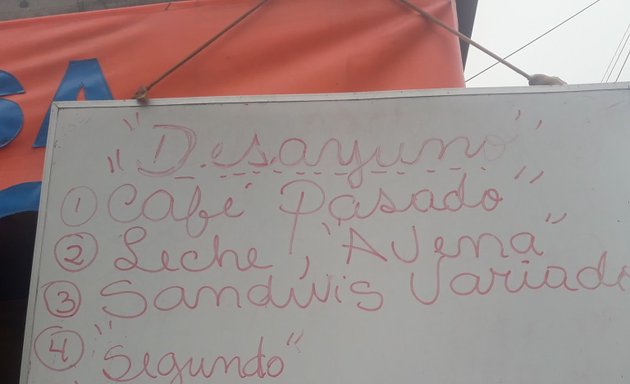 SA
"Desayuno"
1 Café Pasado"
2 Leche, "Avena"
3 Sandwis Variado
4 "Segundo"